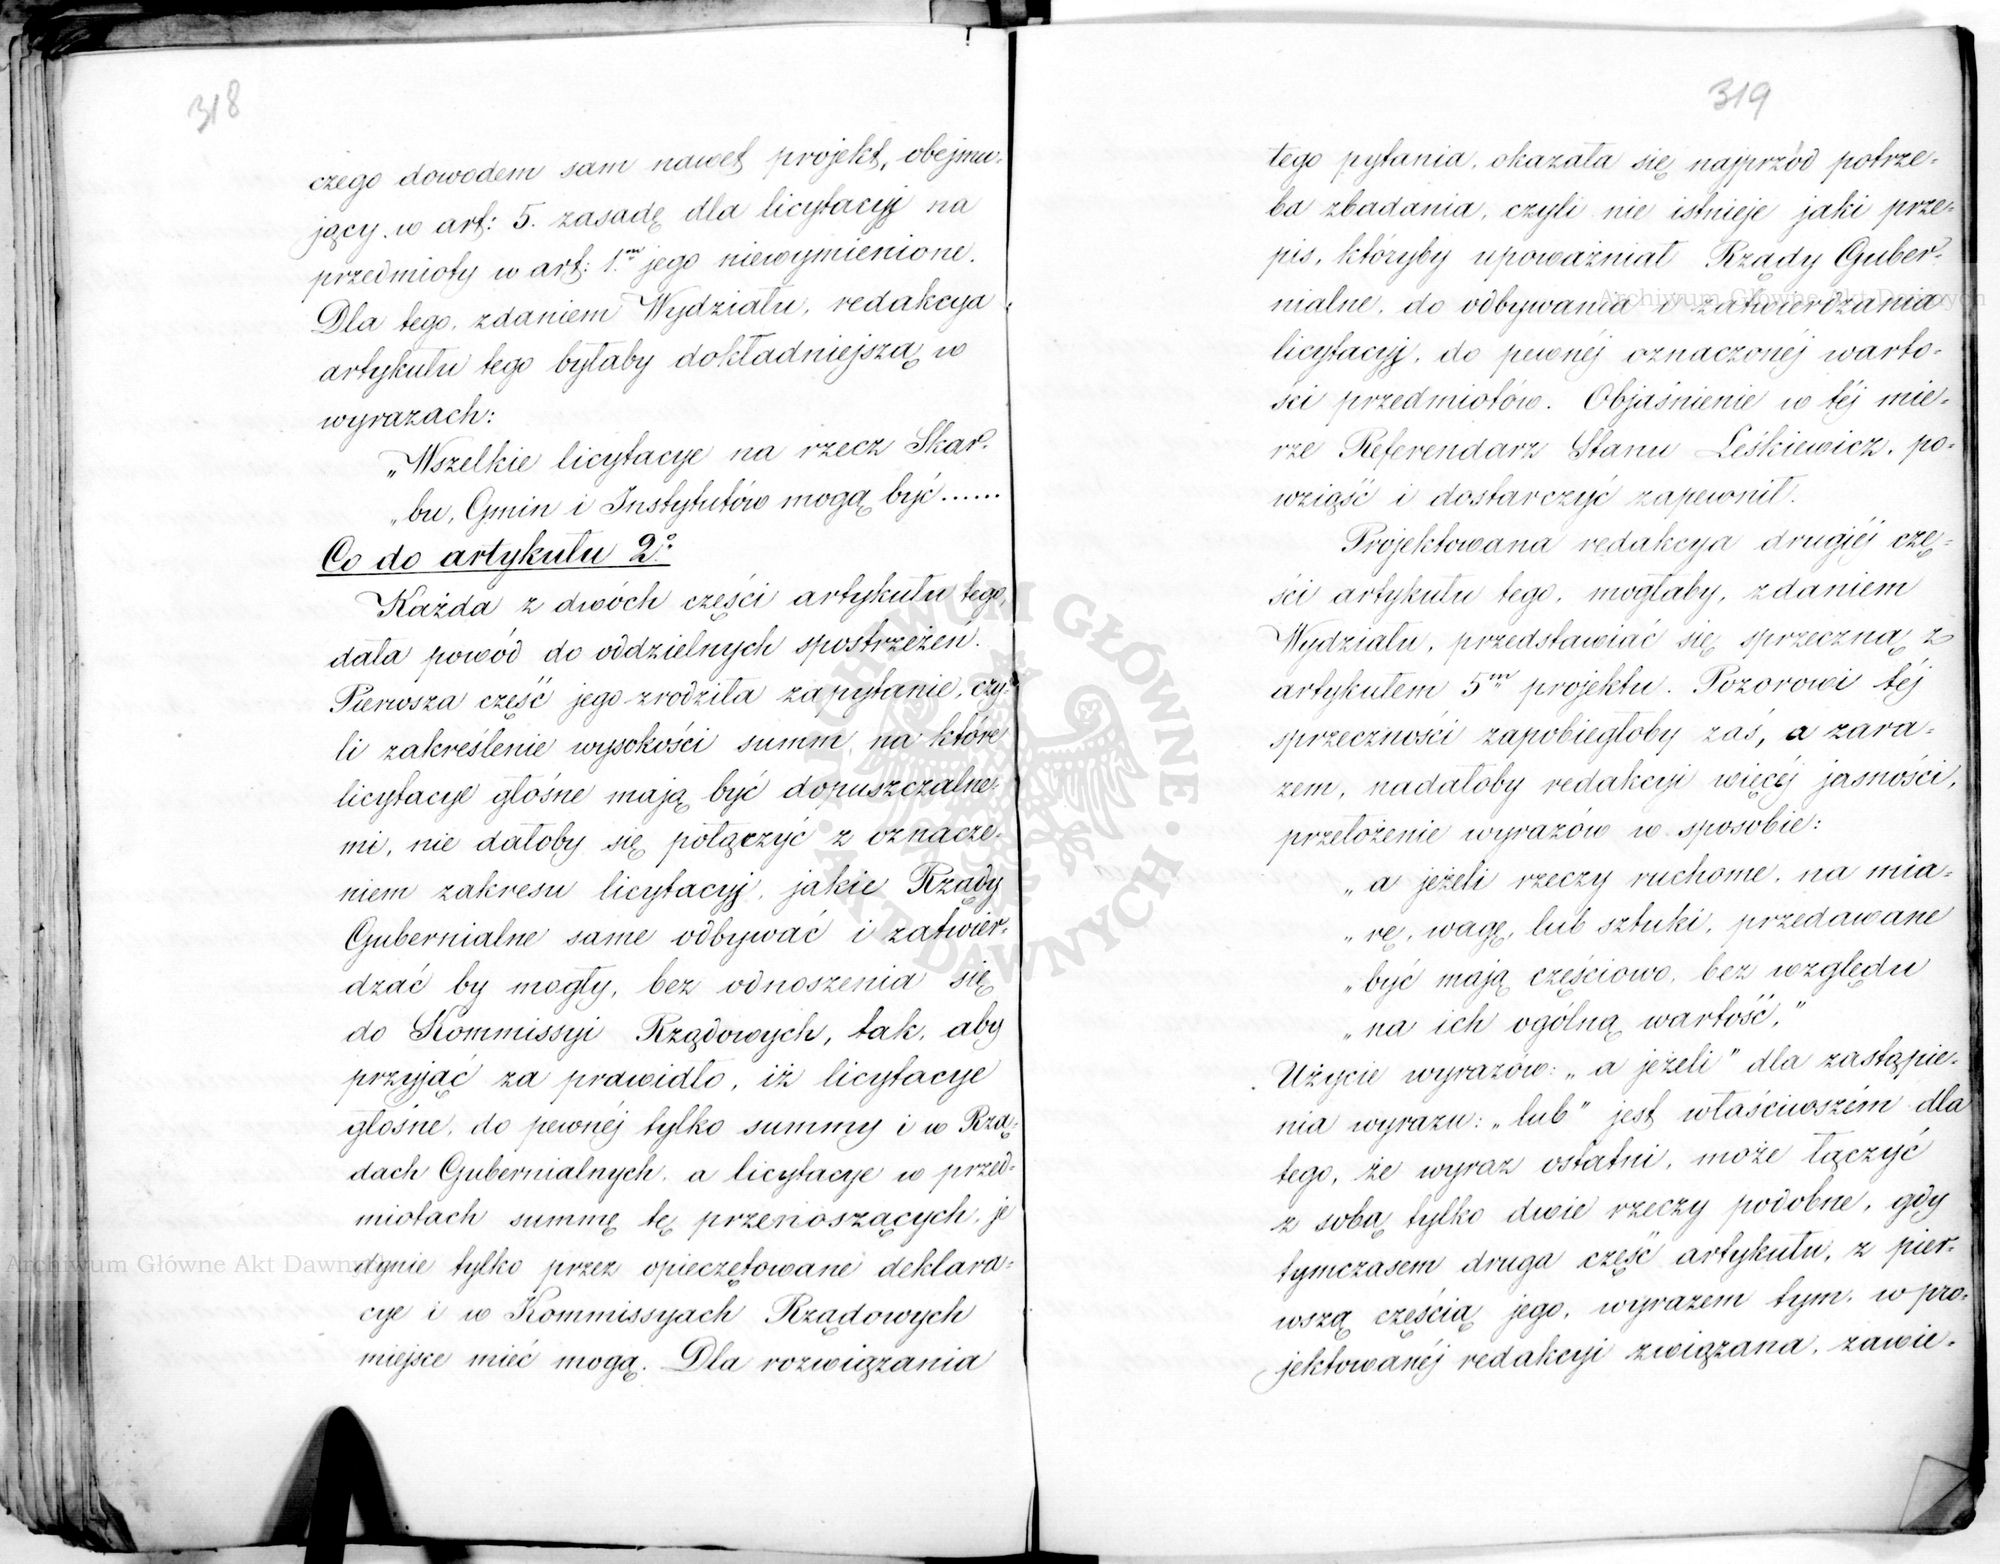 318
czego dowodem sam nawet projekt, obejmu-
jący w art: 5. zasadę dla licytacyj na
przedmioty w art: 1.m jego niewymienione.
Dla tego, zdaniem Wydziału, redakcya
artykułu tego byłaby dokładniejszą w
wyrazach:
„Wszelkie licytacye na rzecz Skar-
„bu, Gmin i Instytutów mogą być......
Co do artykułu 2o
Każda z dwóch części artykułu tego,
dała powód do oddzielnych spostrzeżeń.
Pierwsza część jego zrodziła zapytanie, czy-
li zakreślenie wysokości summ, na które
licytacye głośne mają być dopuszczalne-
mi, nie dałoby się połączyć z oznacze-
niem zakresu licytacyj, jakie Rządy
Gubernialne same odbywać i zatwier-
dzać by mogły, bez odnoszenia się
do Kommissyi Rządowych, tak, aby
przyjąć za prawidło, iż licytacye
głośne, do pewnéj tylko summy i w Rzą-
dach Gubernialnych, a licytacye w przed-
miotach summę tę przenoszących, je
dynie tylko przez opieczętowane deklara-
cye i w Kommissyach Rządowych
miejsce mieć mogą. Dla rozwiązania
319
tego pytania, okazała się najprzód potrze-
ba zbadania, czyli nie istnieje jaki prze-
pis, któryby upoważniał Rządy Guber-
nialne, do odbywania i zatwierdzania
licytacyj, do pewnéj oznaczonéj warto-
ści przedmiotów. Objaśnienie w téj mie-
rze Referendarz Stanu Leśkiewicz, po-
wziąść i dostarczyć zapewnił.
Projektowana redakcya drugiéj czę-
ści artykułu tego, mogłaby, zdaniem
Wydziału, przedstawiać się sprzeczną z
artykułem 5m projektu. Pozorowi téj
sprzeczności zapobiegłoby zaś, a zara-
zem, nadałoby redakcyi więcéj jasności,
przełożenie wyrazów w sposobie:
„a jeżeli rzeczy ruchome, na mia-
„rę, wagę, lub sztuki, przedawane
„być mają częściowo, bez względu
„na ich ogólną wartość,"
Użycie wyrazów: „a jeżeli" dla zastąpie-
nia wyrazu: „lub" jest właściwszém dla
tego, że wyraz ostatni, może łączyć
z sobą tylko dwie rzeczy podobne, gdy
tymczasem druga część artykułu, z pier-
wszą częścią jego, wyrazem tym, w pro-
jektowanéj redakcyi związana, zawie-
ARCHIWUM GŁÓWNE AKT DAWNYCH
Archiwum Główne Akt Dawnych
Archiwum Główne Akt Dawnych